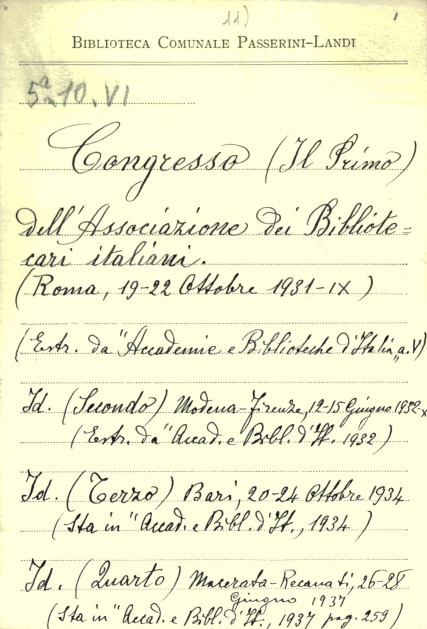 11)
BIBLIOTECA COMUNALE PASSERINI-LANDI
5ª.10.VI
Congresso (Il Primo)
dell'Associazione dei Bibliote=
cari italiani.
(Roma, 19-22 Ottobre 1931-IX)
(Estr. da "Accademie e Biblioteche d'Italia", a. V)
Id. (Secondo) Modena-Firenze, 12-15 Giugno 1932-X
(Estr. da "Accad. e Bibl. d'It. 1932)
Id. (Terzo) Bari, 20-24 Ottobre 1934
(Sta in "Accad. e Bibl. d'It., 1934)
Id. (Quarto) Macerata-Recanati, 26-28
Giugno 1937
(Sta in "Accad. e Bibl. d'It., 1937 pag. 259)